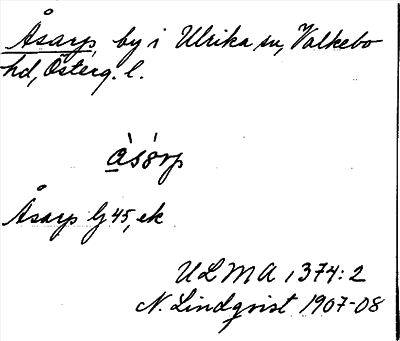 Åsarp, by i Ulrika sn, Valkebo
hd, Österg. l.
Åsarp Gj 45, ek
ULMA 1374:2
N. Lindqvist 1907-08